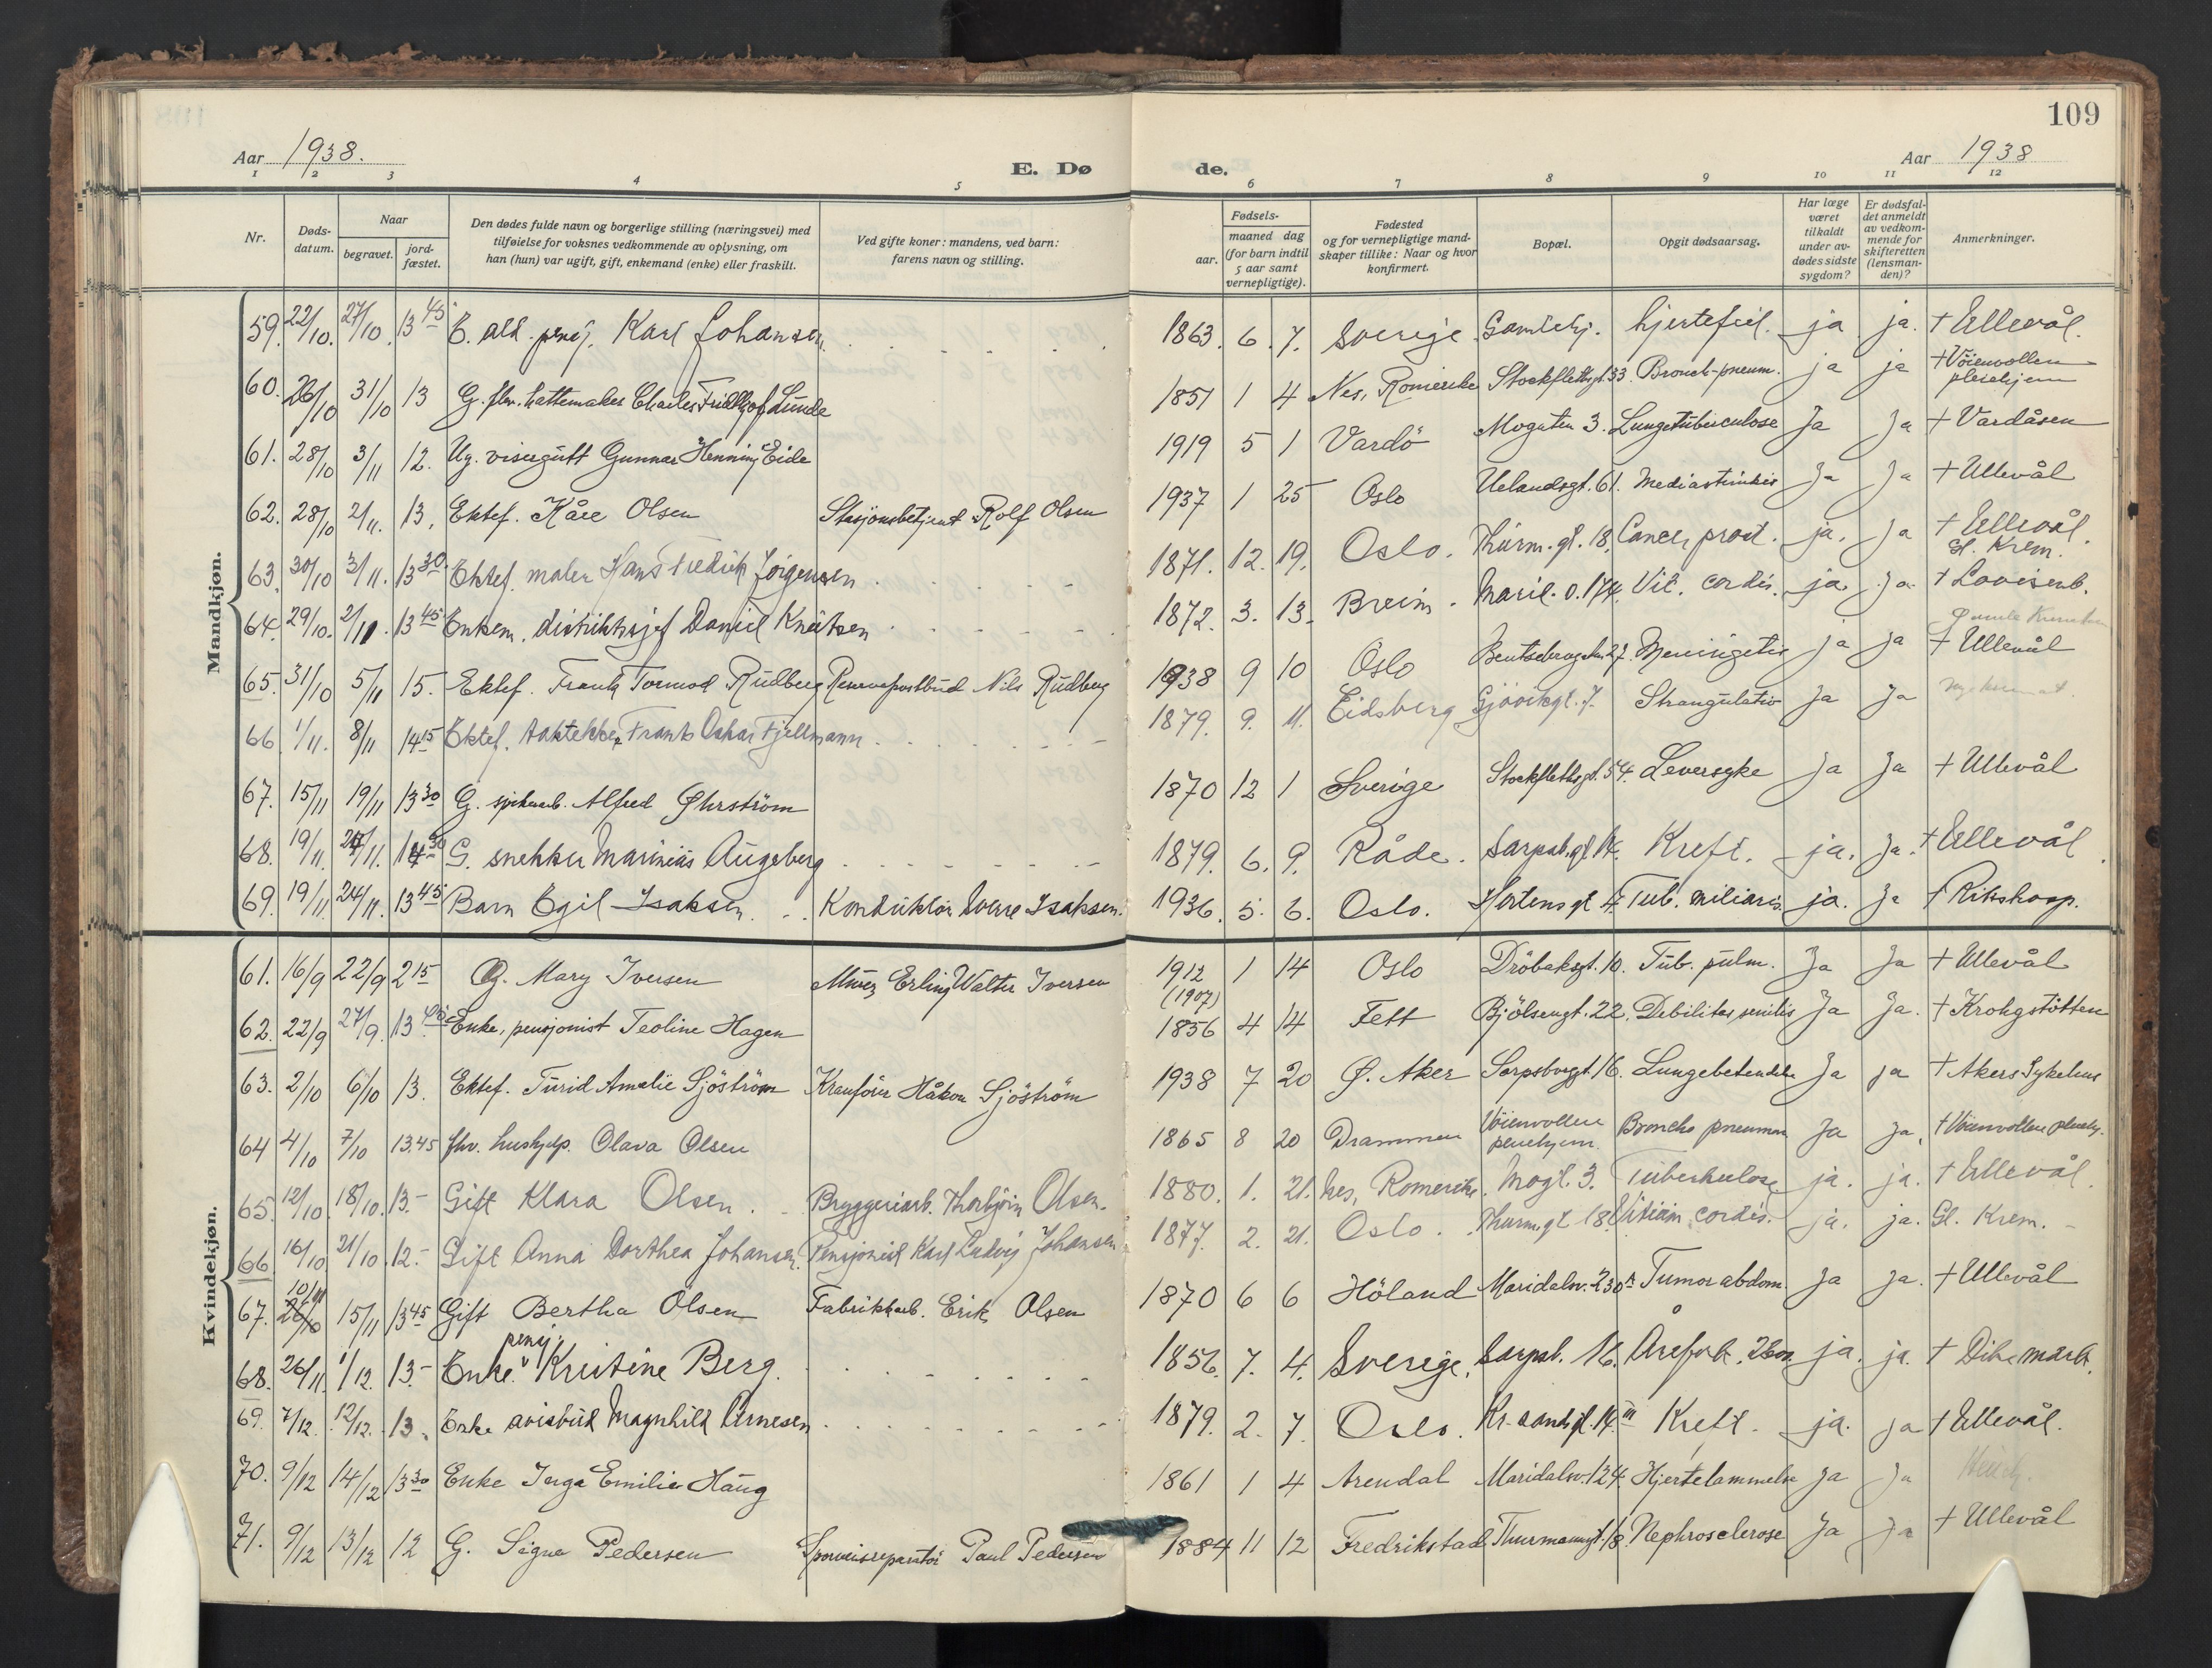 109
Aar 1938.
E. Dø
de.
Aar 1938
1 2 3 4 5 6 7 8 9 10 11 12
Nr.
Døds-datum.
Naar
begravet.
jord-fæstet.
Den dødes fulde navn og borgerlige stilling (næringsvei) med
tilføielse for voksnes vedkommende av oplysning, om
han (hun) var ugift, gift, enkemand (enke) eller fraskilt.
Ved gifte koner: mandens, ved barn:
farens navn og stilling.
Fødsels-
aar.
maaned dag
(for barn indtil
5 aar samt
vernepligtige).
Fødested
og for vernepligtige mand-
skaper tillike: Naar og hvor
konfirmert.
Bopæl.
Opgit dødsaarsag.
Har læge
været
tilkaldt
under av-
dødes sidste
sygdom?
Er dødsfal-
det anmeldt
av vedkom-
mende for
skifteretten
(lensman-
den)?
Anmerkninger.
Mandkjøn.
59. 22/10. 27/10. 13 45 E. ald. pensj. Karl Johansen. 1863. 6. 7. Sverige. Gamlehj. hjertefeil. ja ja. + Ullevål.
60. 26/10 31/10 13 G. fhv. hattemaker Charles Fridthjof Lunde 1851 1 4 Nes, Romerike Stockflethsgt. 33. Bronch-pneum. ja ja + Vöienvollen pleiehjem
61. 28/10 3/11 12. Ug. visergutt Gunnar Henning Eide 1919 5 1 Vardö Mogaten 3. Lungetuberculose Ja Ja + Vardåsen
62. 28/10 2/11. 13. Ektef. Kåre Olsen Stasjonsbetjent Rolf Olsen 1937 1 25 Oslo Uelandsgt. 61. Mediastinitis Ja Ja + Ullevål
63. 30/10 3/11. 13 30 Ektef. maler Hans Fredrik Jörgensen 1871. 12. 19. Oslo. Thurm. gt. 18. Cancer prost. ja. ja + Ullevål. Gl. Krem.
64. 29/10. 2/11. 13 45 Enkem. distriktsjef Daniel Knutsen 1872. 3. 13. Breim. Maril. v. 174. Vit. cordis. ja. Ja. + Lovisenb. Gamle Krematorium
65. 31/10 5/11 15. Ektef. Frank Tormod Rudberg Reservepostbud Nils Rudberg 1938 9 10 Oslo Bentsebrugaten 27. Meningitis ja ja + Ullevål
66. 1/11. 8/11 14 15 Ektef. taktekker Frants Oskar Fjellmann. 1879. 9. 11. Eidsberg Gjövikgt. 7. Strangulatio Ja Ja Nye kremat.
67. 15/11 19/11 13 30 G. spikerarb. Alfred Øhrström 1870 12 1 Sverige Stockflethsgt. 54. Leversyke Ja Ja + Ullevål
68. 19/11. 24/11. 14 30 G. snekker Marinius Augeberg 1879. 6. 9. Råde. Sarpsb. gt 14. Kreft. ja. Ja. + Ullevål.
69. 19/11 24/11. 13 45 Barn Egil Isaksen. Konduktör Sverre Isaksen. 1936. 5. 6. Oslo. Hortensgt 4. Tub. miliaris. ja. Ja + Rikshosp.
Kvindekjøn.
61. 16/9 22/9 2 15 G. Mary Iversen Murer Erling Walter Iversen 1912 (1907) 1 14 Oslo Dröbaksgt. 10. Tub. pulm. Ja Ja + Ullevål
62. 22/9 27/9. 13 45 Enke, pensjonist Teoline Hagen 1856 4 14 Fett Bjölsengt. 22. Debilitas senilis Ja Ja. + Krohgstötten
63. 2/10 6/10 13. Ektef. Turid Amalie Sjöström Kranförer Håkon Sjöström 1938 7 20 Ø. Aker Sarpsborggt. 16. Lungebetendelse Ja ja + Akers Sykehus
64 4/10 7/10 13.45 fhv. hushjelp. Olava Olsen 1865 8 20 Drammen Vöienvollen pleiehjem. Broncho pneumon Ja Ja. + Vöienvollen pleiehj.
65. 12/10 18/10. 13.- Gift Klara Olsen. Bryggeriarb. Thorbjörn Olsen. 1880. 1. 21. Nes, Romerike. Mogt. 3. Tuberkulose ja. ja. + Ullevål.
66 16/10 21/10 12.- Gift Anna Dorthea Johansen. Pensjonist Karl Ludvig Johansen 1877. 2. 21. Oslo. Thurm. gt 18. Vitium cordis. ja. ja. Gl. Krem. -
67. 10/11 15/11 13 45 Gift Bertha Olsen Fabrikkarb. Erik Olsen 1870 6 6 Höland Maridalsv. 230 A Tumor abdom. Ja Ja. + Ullevål
68. 26/11. 1/12. 13.- Enke pensj. Kristine Berg. 1856. 7. 4. Sverige. Sarpsb. 16. Årefork. ja. ja. + Dikemark.
69. 7/12. 12/12. 13. Enke avisbud Magnhild Arnesen 1879. 2. 7. Oslo. Kr.sandsgt. 14. III Kreft. ja. ja + Ullevål.
70. 9/12 14/12 13 30 Enke Inga Emilie Haug 1861 1 4 Arendal Maridalsv. 124. Hjertelammelse Ja Ja
71. 9/12 13/12 12 G. Signe Pedersen Sporveisreparatör Paul Pedersen 1884 11 12 Fredrikstad Thurmannsgt. 18 Nephrosclerose Ja Ja + Ullevål